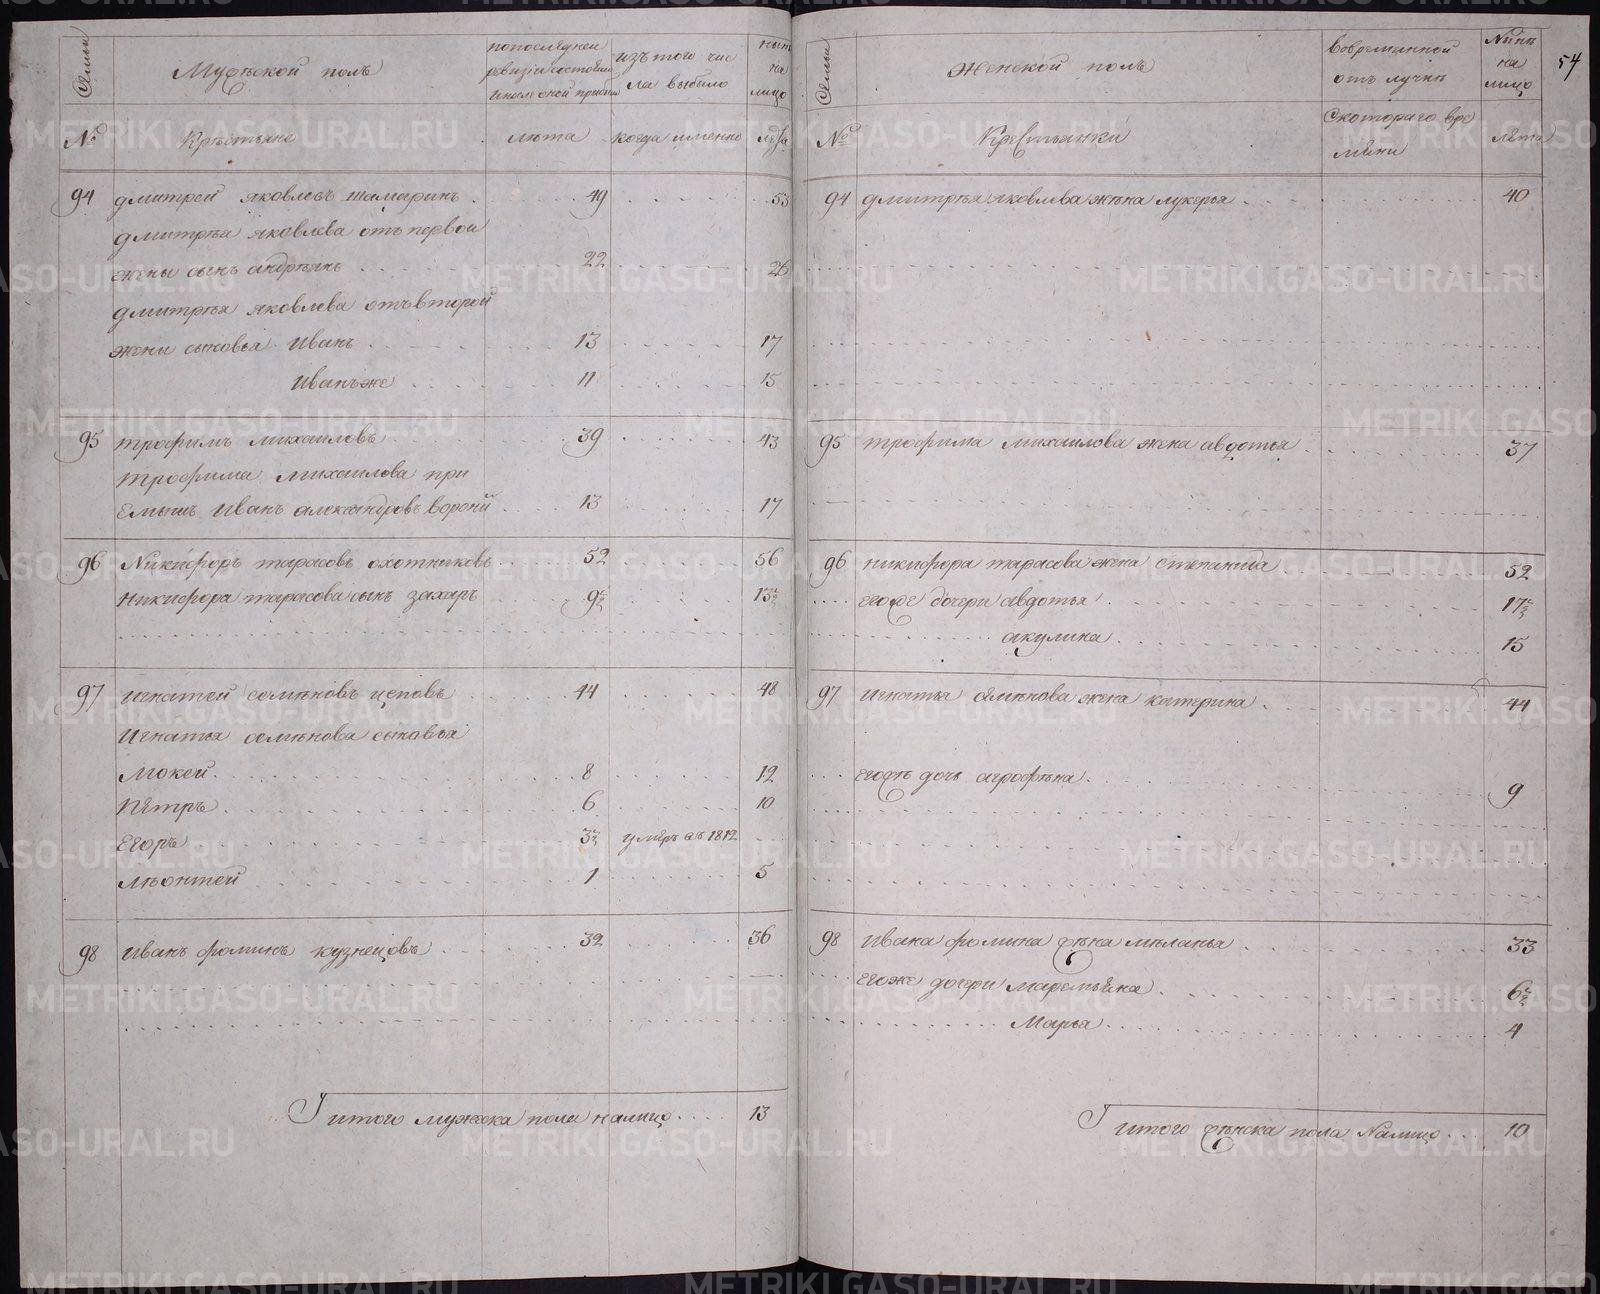 Семьи
Мужеской полъ
попоследней
ревизии состояло
изъ того чис
ла выбыло
ныне
на
лицо
№
Крестьяне
лета
когда имянно
лета
94 дмитрей яковлевъ шамаринъ 49 53
дмитрея яковлева отъ первой
жены сынъ андреянъ 22 26
дмитрея яковлева отъ второй
жены сыновья Иванъ 13 17
Иванъ же 11 15
95 трофимъ михаиловъ 39 43
трофима михаилова при
емышъ Иванъ александровъ воронй 13 17
96 Никифоръ тарасовъ охотниковъ 52 56
никифора тарасова сынъ захаръ 9½ 13½
97 игнатей семеновъ цеповъ 44 48
Игнатья семенова сыновья
Мокей 8 12
Пётръ 6 10
Егоръ 3½ умеръ въ 1812
леонтей 1 5
98 иванъ фоминъ кузнецовъ 32 36
итого мужеска пола налицо 13
54
Семьи
Женской полъ
вовременной
отъ лучке
Ныне
на
лицо
№
Крестьянки
Скотораго вре
мени
лета
94 дмитрея яковлева жена лукерья 40
95 трофима михаилова жена авдотья 37
96 никифора тарасова жена степанида 52
егоже дочери авдотья 17½
акулина 15
97 игнатья семенова жена катерина 44
егоже дочь агрофена 9
98 ивана фомина жена меланья 33
егоже дочери маремьяна 6½
Марья 4
итого женска пола налицо 10
METRIKI.GASO-URAL.RU